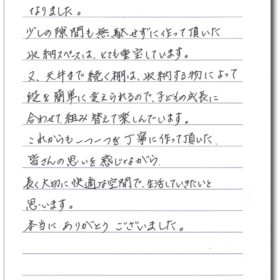 なりました。
少しの隙間も無駄せずに作って頂いた
収納スペースは、とても重宝しています。
又、天井まで続く棚は、収納する物によって
段を簡単に変えられるので、子どもの成長に
合わせて組み替えて楽しんでいます。
これからも一つ一つを丁寧に作って頂いた、
皆さんの思いを感じながら、
長く大切に快適な空間で、生活していきたいと
思います。
本当に ありがとう ございました。